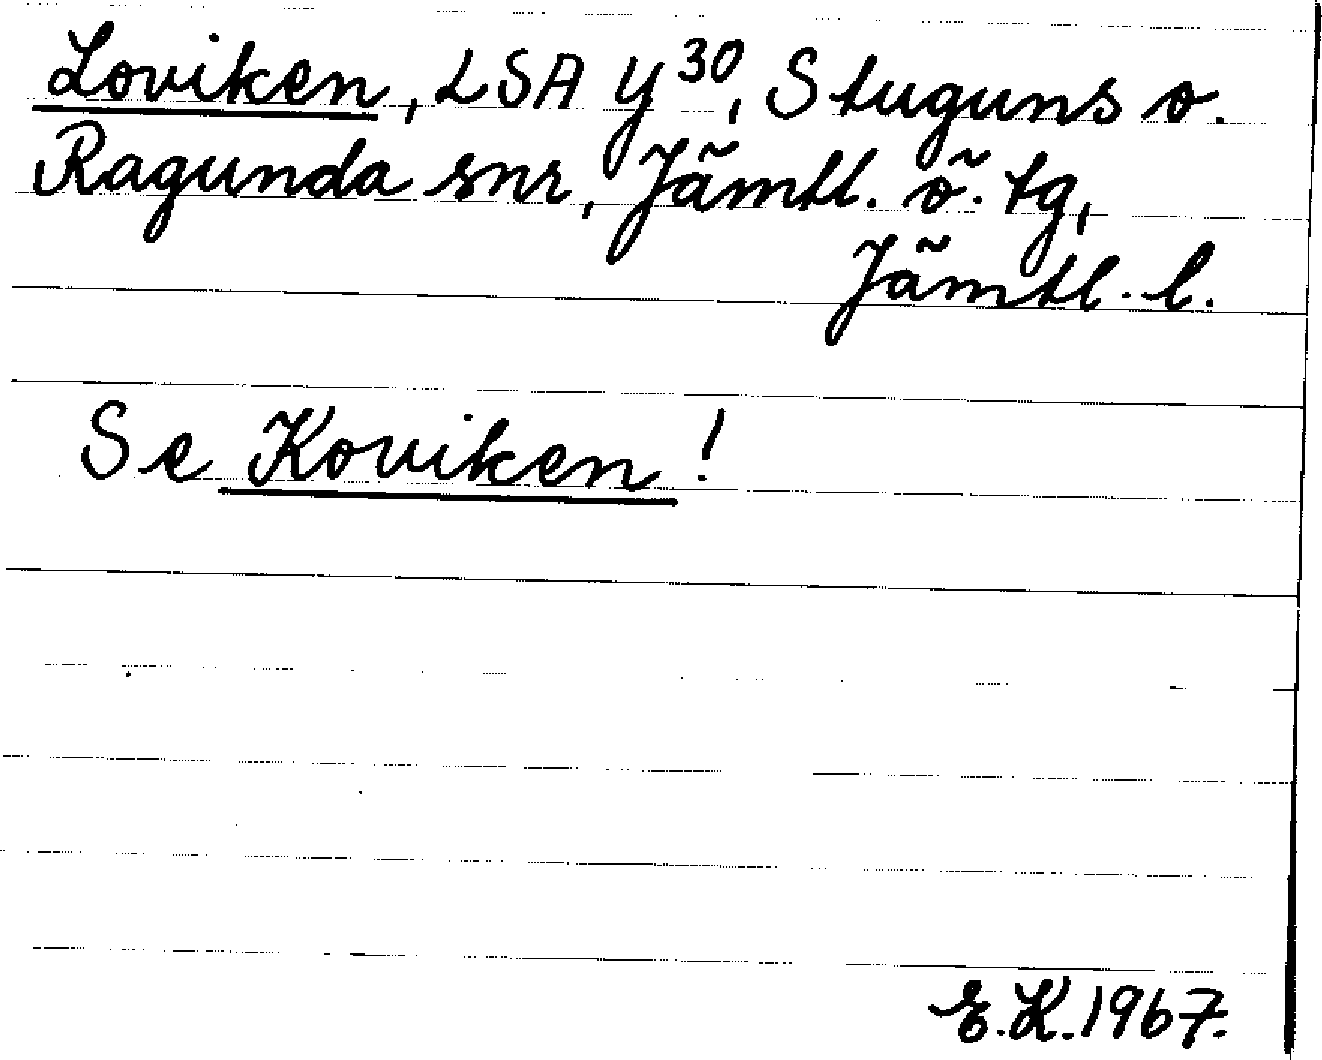 Loviken, LSA Y³⁰, Stuguns o.
Ragunda snr, Jämtl. ö. tg,
Jämtl. l.
Se Koviken!
E.K. 1967.